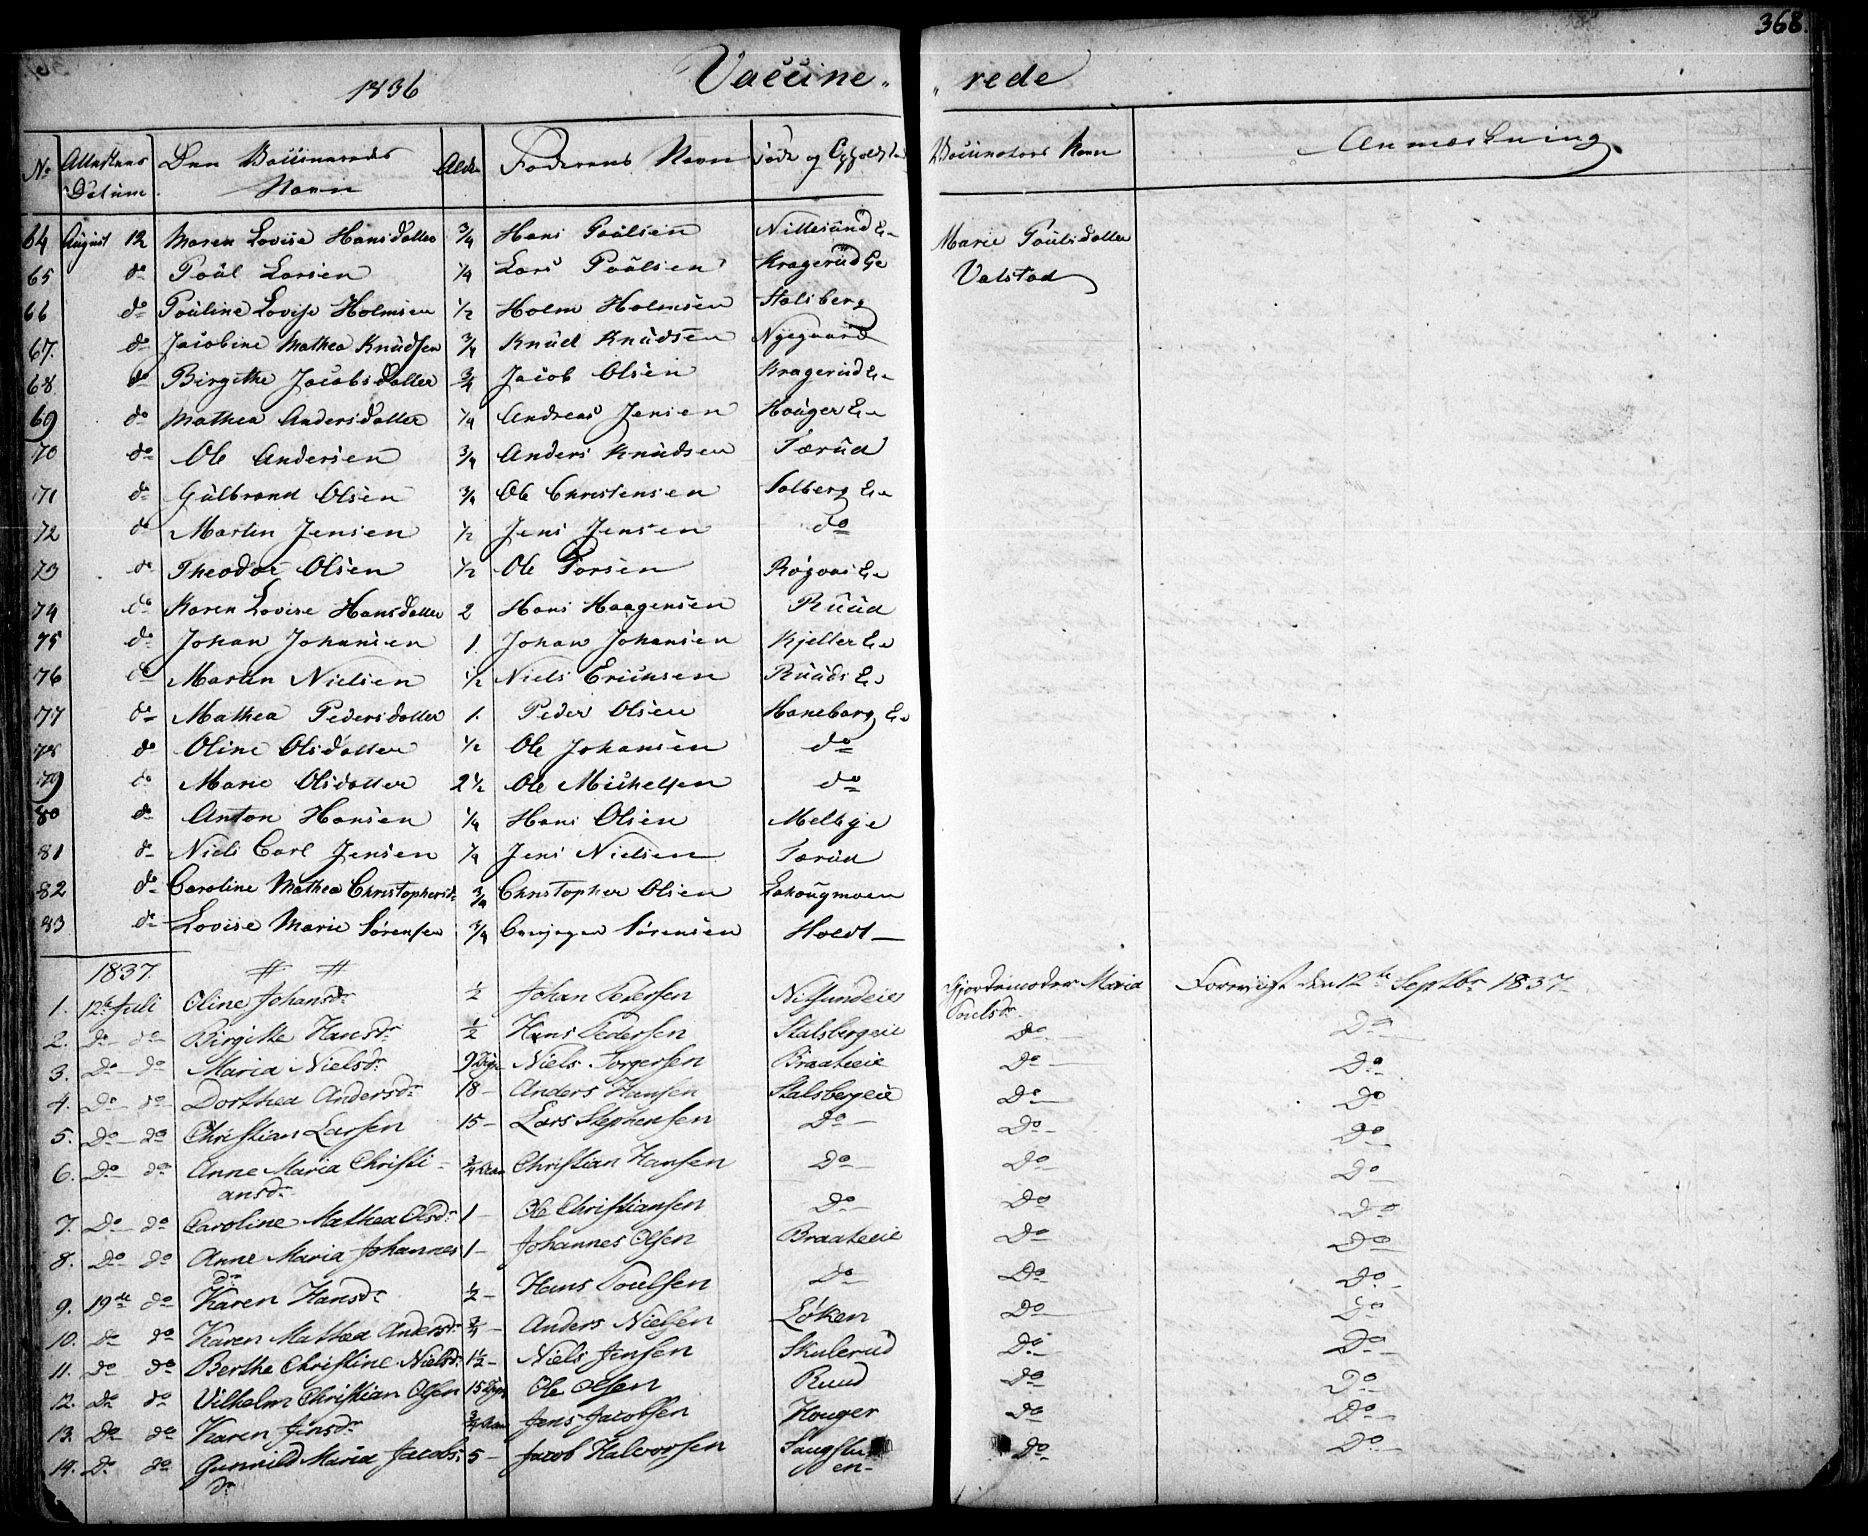 368.
1836 Vaccine- -rede
No Attestens Datum Den Vaccineredes Navn Alder Faderens Navn Føde og Opholdsted Vaccinators Navn Anmærkning
64 August 12 Maren Lovise Hansdatter 3/4 Hans Poulsen Nittesund Eie Marie Poulsdatter
65 do Poul Larsen 1/4 Lars Poulsen Kragerud Eie Valstad
66 do Pouline Lovise Holmsen 1/2 Holm Holmsen Stalsberg
67. do Jacobine Mathea Knudsen 3/4 Knud Knudsen Nyegaard
68 do Birgithe Jacobsdatter 3/4 Jacob Olsen Kragerud Eie
69 do Mathea Andersdatter 1/4 Andreas Jensen Houger Eie
70 do Ole Andersen 3/4 Anders Knudsen Tærud
71 do Gulbrand Olsen 3/4 Ole Christensen Solberg Eie
72 do Martin Jensen 1/2 Jens Jensen do
73 do Theodor Olsen 1/2 Ole Torsen
74 do Karen Lovise Hansdatter 2 Hans Haagensen Ruud
75 do Johan Johansen 1. Johan Johansen Kjeller Eie
76 do Martin Nielsen 1/2 Niels Ericksen Ruuds Eie
77 do Mathea Pedersdatter 1. Peder Olsen Haneborg Eie
78 do Oline Olsdatter 1/2 Ole Johansen do
79 do Marie Olsdatter 2 1/2 Ole Michelsen do
80 do Anton Hansen 1/4 Hans Olsen Melbye
81 do Niels Carl Jensen 1/4 Jens Nielsen Tærud
82 do Caroline Mathea Christophersdr 3/4 Christopher Olsen
83 do Lovise Marie Sørensen 3/4 Sørensen Hvedt
1837.
1. 12te Juli Oline Johansdr 1/2 Johan Pedersen Nitsundeie Gjordemoder Maria Foreviist den 12te Septbr 1837
Poulsdr
2. Do do Birgitte Hansdr 1/2 Hans Pedersen Stalsbergeie Do Do
3. Do do Maria Nielsdr 9 Dage Niels Torgersen Braateeie Do Do
4. Do do Dorthea Andersdr 18 Anders Hansen Stalsbergeie Do Do
5. Do do Christian Larsen 15 Lars Stephensen Do Do Do
6. Do do Anne Maria Christi- 3/4 Aar Christian Hansen Do Do Do
ansdr
7. Do do Caroline Mathea Olsdr 1 Ole Christiansen Do Do Do
8. Do do Anne Maria Johannes 1 Johannes Olsen Braateeie Do Do
dr
9. 19de do Karen Hansdr 1/2 Hans Poulsen Do Do Do
10. Do do Karen Mathea Andersdr 3/4 Anders Nielsen Løken Do Do
11. Do do Berthe Christine Nielsdr 1 1/2 Niels Jensen Skulerud Do Do
12. Do do Vilhelm Christian Olsen 15 Dage Ole Olsen Ruud Do Do
13. Do do Karen Jensdr 3/4 Aar Jens Jacobsen Houger Do Do
14. Do do Gunnild Maria Jacobs- 5 Jacob Halvorsen Do Do
dr